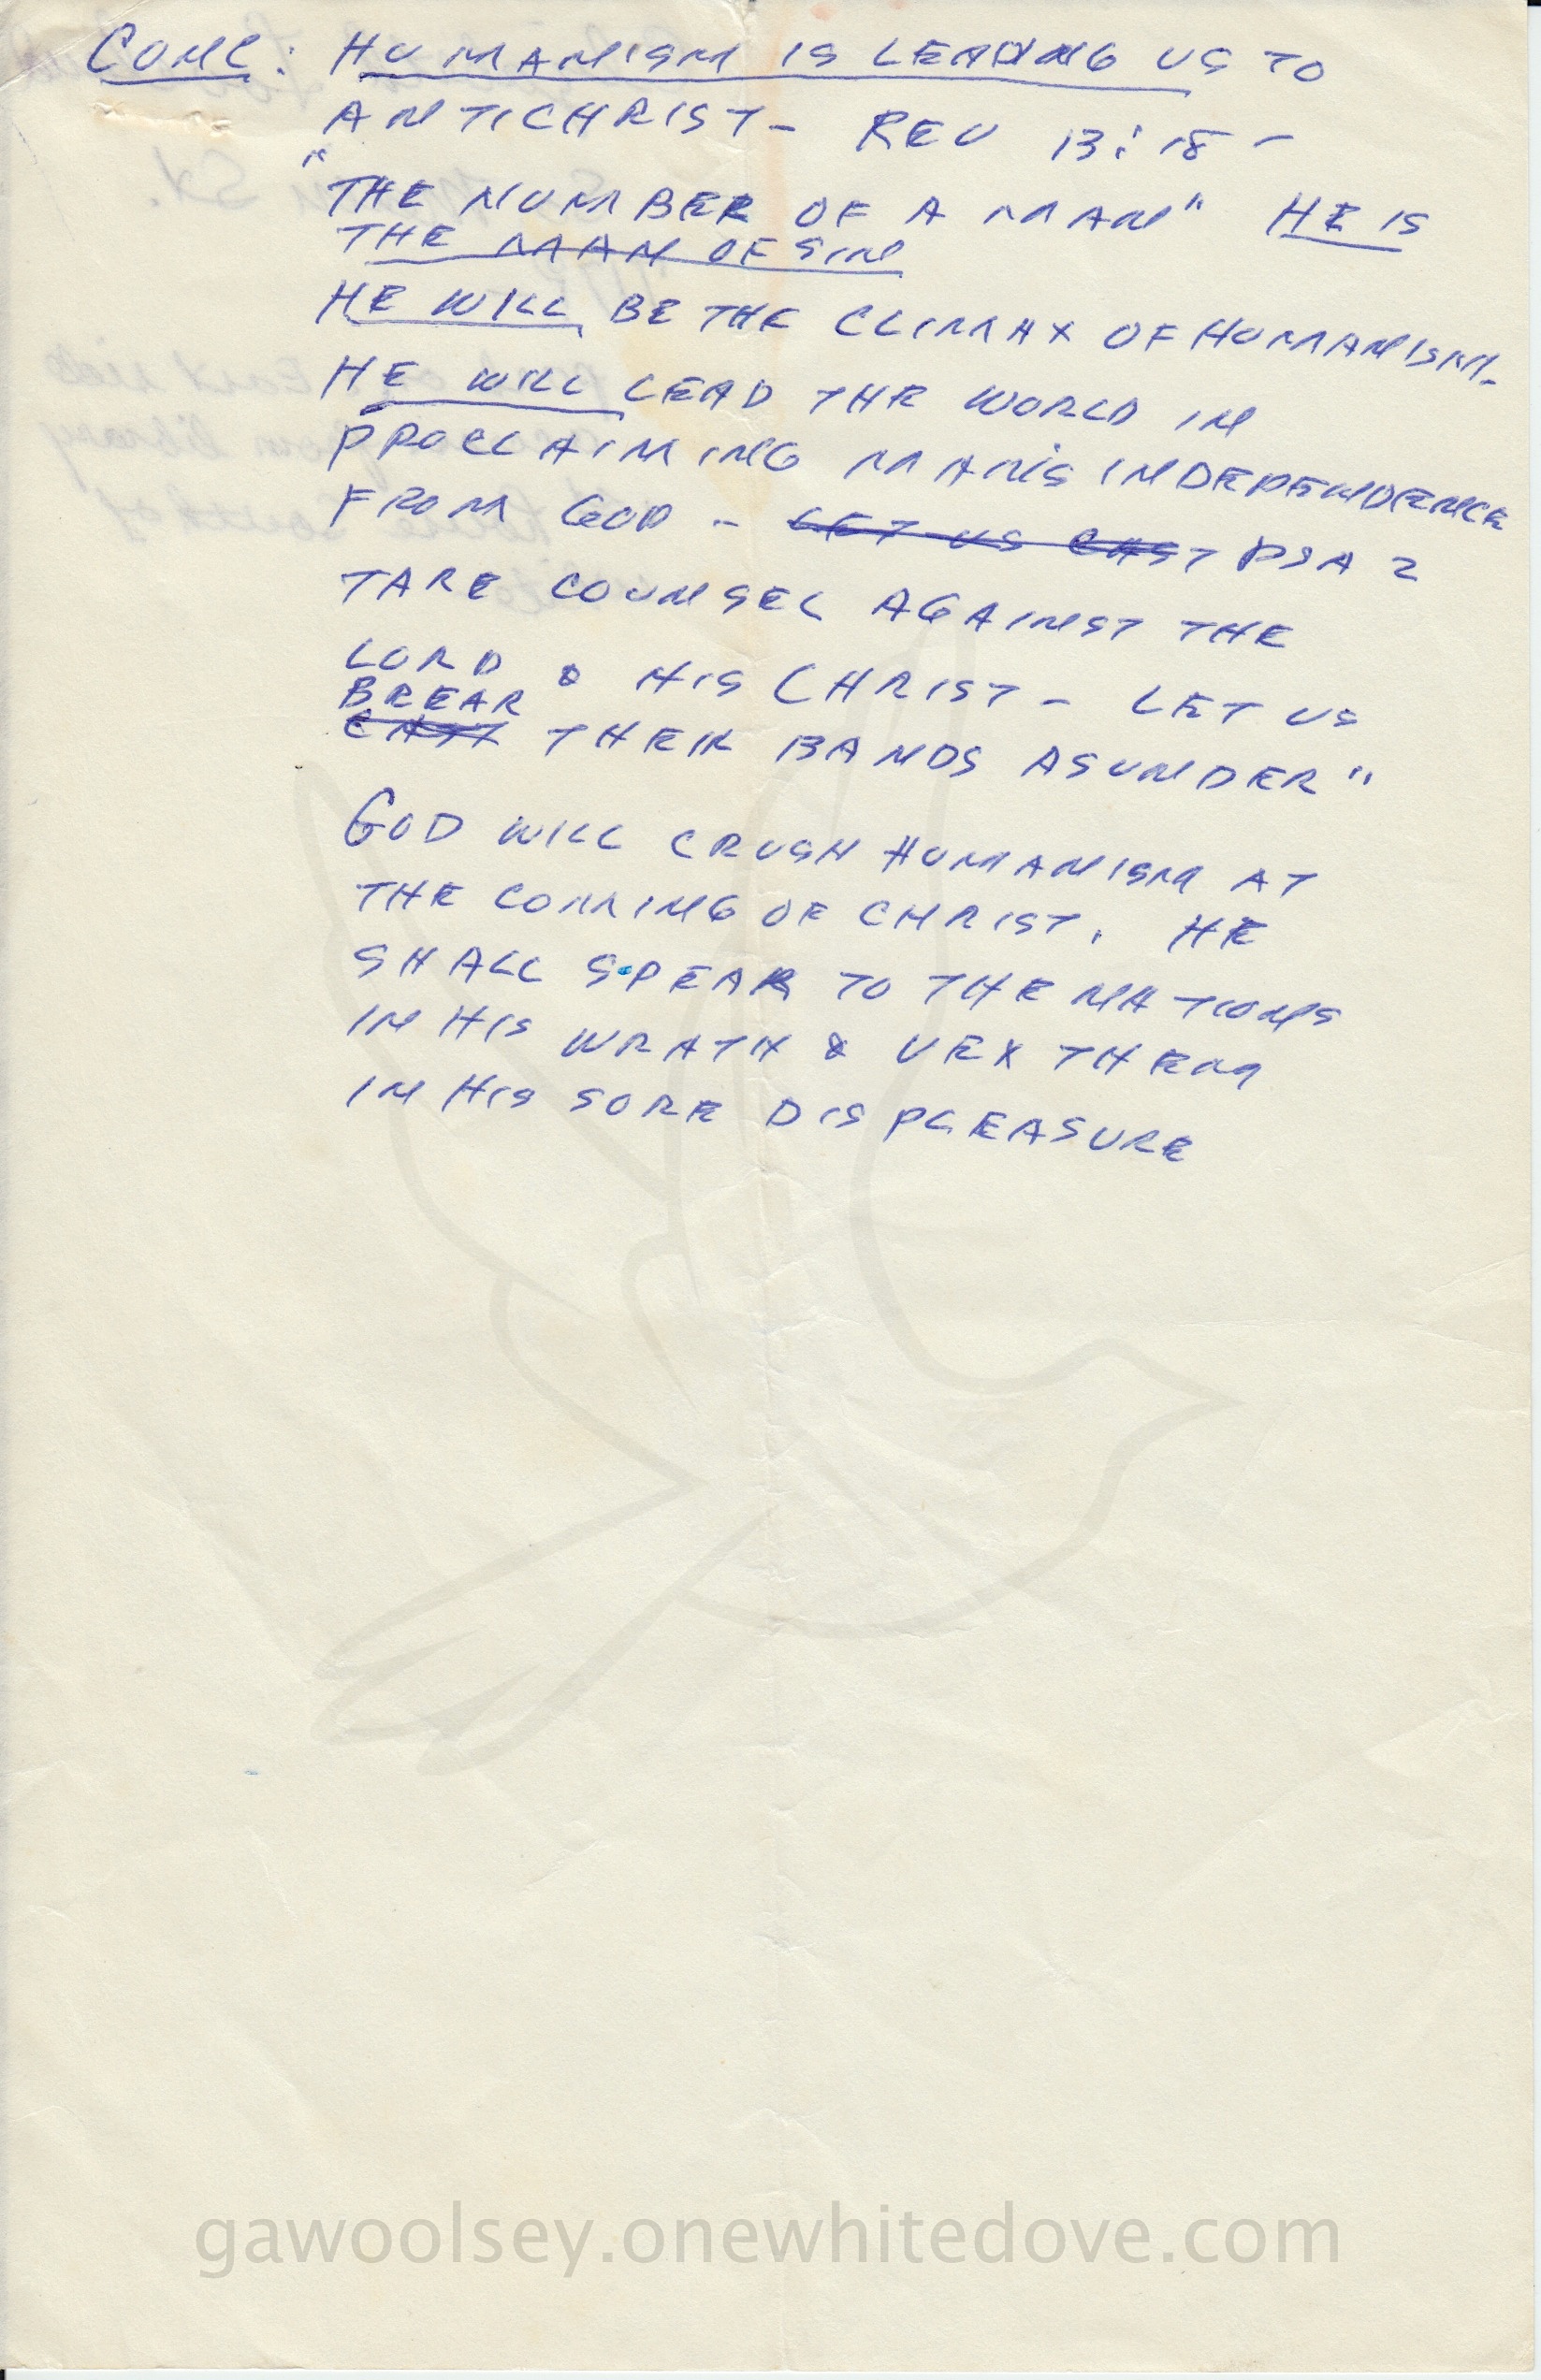 CONC: HUMANISM IS LEADING US TO
ANTICHRIST - REV 13:18 -
"THE NUMBER OF A MAN" HE IS
THE MAN OF SIN
HE WILL BE THE CLIMAX OF HUMANISM -
HE WILL LEAD THE WORLD IN
PROCLAIMING MAN'S INDEPENDENCE
FROM GOD - LET US CAST PSA 2
TAKE COUNSEL AGAINST THE
LORD & HIS CHRIST - LET US
BREAK
CAST THEIR BANDS ASUNDER"
GOD WILL CRUSH HUMANISM AT
THE COMING OF CHRIST. HE
SHALL SPEAK TO THE NATIONS
IN HIS WRATH & VEX THEM
IN HIS SORE DISPLEASURE
gawoolsey.onewhitedove.com